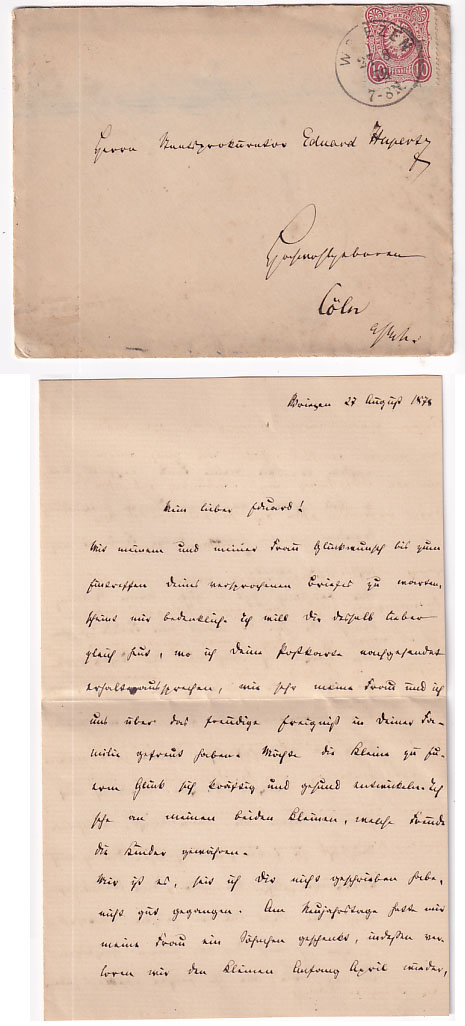 WRIEZEN
7-8N.
10 10
Herrn Staatsprokurator Eduard Hupertz
Hochwohlgeboren
Cöln
a/Rhn.
Wriezen 27 August 1878
Mein lieber Eduard!
Mit meinem und meiner Frau Glückwunsch bis zum
Eintreffen Deines versprochenen Briefes zu warten,
scheint mir bedenklich. Ich will Dir deshalb lieber
gleich heut, wo ich Deine Postkarte nachgesendet
erhalte, aussprechen, wie sehr meine Frau und ich
uns über das freudige Ereigniß in Deiner Fa-
milie gefreut haben. Möchte die Kleine zu Eu-
erm Glück sich kräftig und gesund entwickeln. Ich
sehe an meinen beiden Kleinen, welche Freude
die Kinder gewähren.
Mir ist es, seit ich Dir nicht geschrieben habe,
nicht gut gegangen. Am Neujahrstage hatte mir
meine Frau ein Söhnchen geschenkt, indessen ver-
loren wir den Kleinen Anfang April wieder,